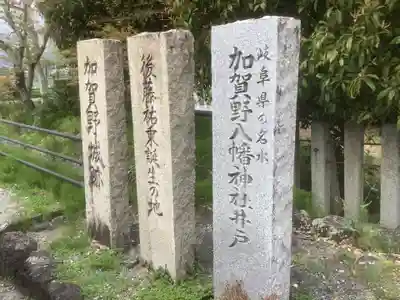 岐阜県の名水
加賀野八幡神社井戸
後藤祐東誕生の地
加賀野城跡